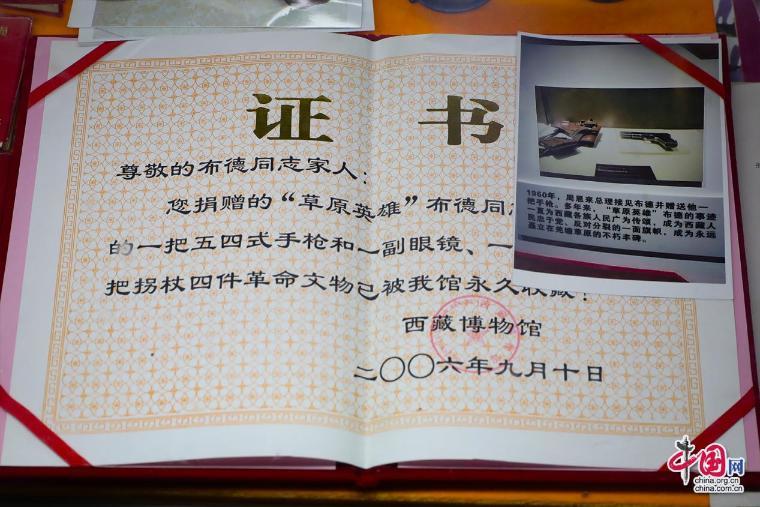 证 书
尊敬的布德同志家人：
您捐赠的“草原英雄”布德同志
的一把五四式手枪和一副眼镜、一
把拐杖四件革命文物已被我馆永久收藏！
西藏博物馆
二〇〇六年九月十日
1960年，周恩来总理接见布德并赠送他一
把手枪。多年来，“草原英雄”布德的事迹
一直为西藏各族人民广为传颂，成为西藏人
民忠于党、反对分裂的一面旗帜，成为永远
矗立在羌塘草原的不朽丰碑。
中国网
china.org.cn
china.com.cn